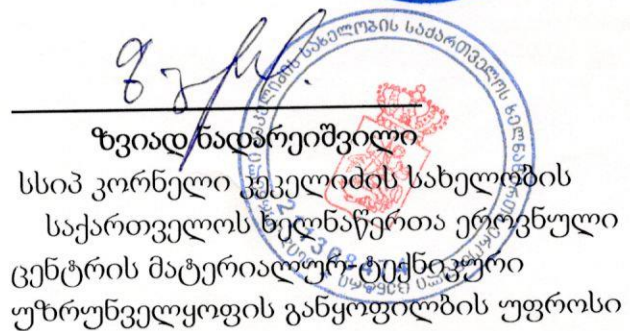 ზვიად ნადარეიშვილი
სსიპ კორნელი კეკელიძის სახელობის
საქართველოს ხელნაწერთა ეროვნული
ცენტრის მატერიალურ-ტექნიკური
უზრუნველყოფის განყოფილბის უფროსი